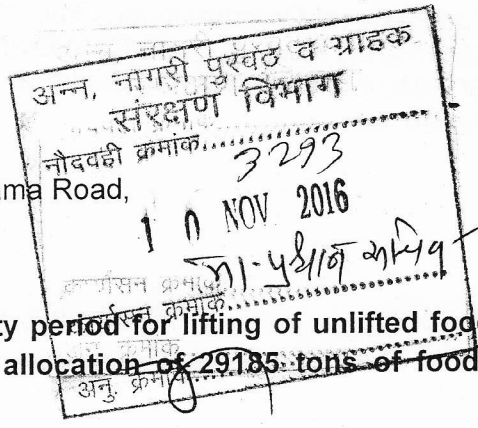 अन्न, नागरी पुरवठ व ग्राहक
संरक्षण विभाग
नौदवही क्रमांक
3293
ma Road,
10 NOV 2016
मा. प्रधान सचिव
कार्यासन क्रमांक
ty period for lifting of unlifted foo
allocation of 29185 tons of food
अनु. क्रमांक